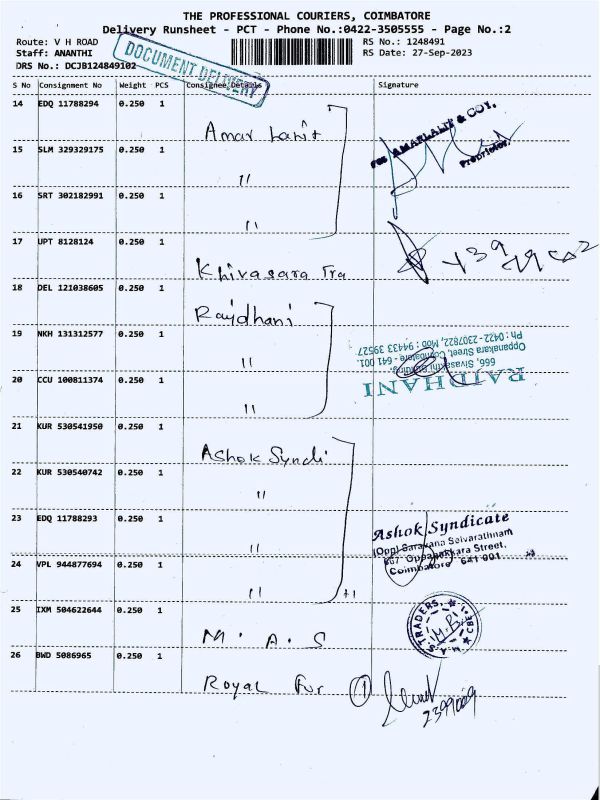 THE PROFESSIONAL COURIERS, COIMBATORE
Delivery Runsheet - PCT - Phone No.:0422-3505555 - Page No.:2
Route: V H ROAD
RS No.: 1248491
Staff: ANANTHI
RS Date: 27-Sep-2023
DRS No.: DCJB124849102
DOCUMENT DELIVERY
S No Consignment No Weight PCS Consignee Details Signature
14 EDQ 11788294 0.250 1
Amar Lalit
FOR AMARLALIT & COY.
Proprietor.
15 SLM 329329175 0.250 1
"
16 SRT 302182991 0.250 1
"
17 UPT 8128124 0.250 1
Khivasara Tra
18 DEL 121038605 0.250 1
Rajdhani
19 NKH 131312577 0.250 1
"
RAJDHANI
666, Sivasakthi Building,
Oppanakara Street, Coimbatore - 641 001.
Ph : 0422 - 2307822, Mob : 94433 39527
20 CCU 100811374 0.250 1
"
21 KUR 530541950 0.250 1
Ashok Syndi
22 KUR 530540742 0.250 1
"
23 EDQ 11788293 0.250 1
"
Ashok Syndicate
(Opp) Saravana Selvarathnam
Oppanakkara Street,
Coimbatore 641 001
24 VPL 944877694 0.250 1
"
25 IXM 504622644 0.250 1
M.A.S
M.A.S. TRADERS, CBE
26 BWD 5086965 0.250 1
Royal Fur 1
2399009